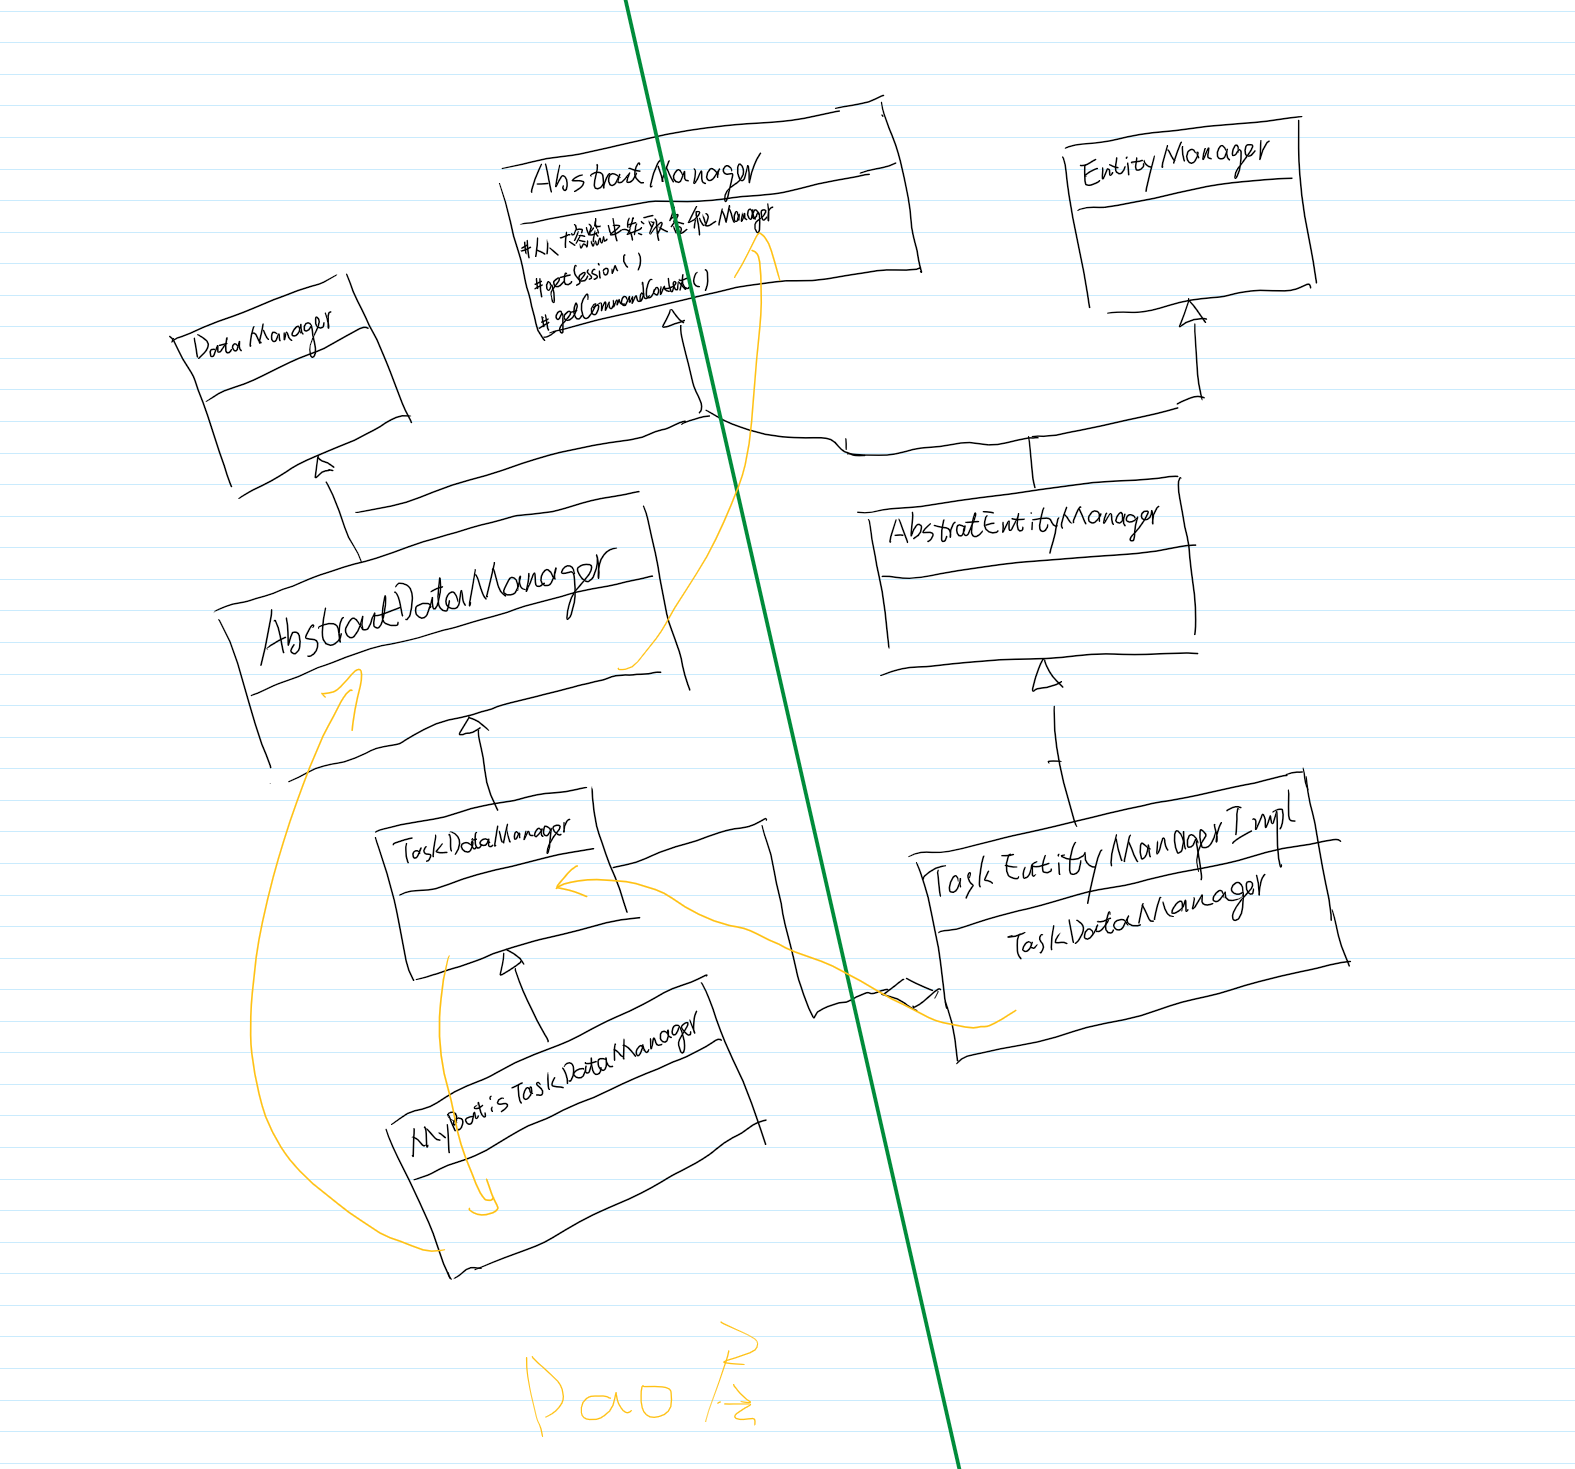 AbstractManager
#从大容器中获取各种Manager
#getSession()
#getCommandContext()
EntityManager
DataManager
AbstractDataManager
AbstratEntityManager
TaskDataManager
TaskEntityManagerImpl
TaskDataManager
MyBatisTaskDataManager
Dao层